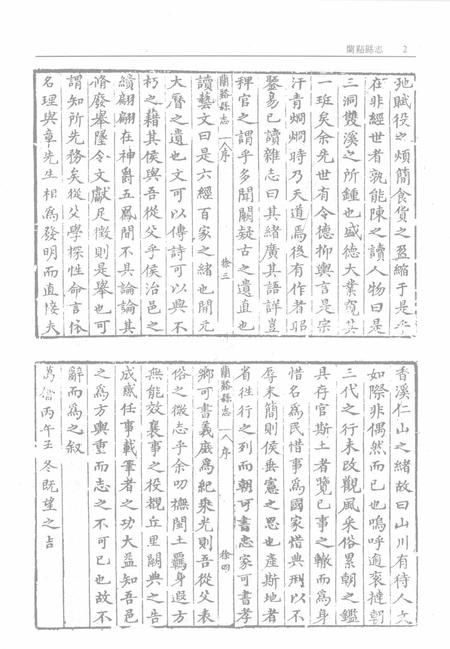 蘭谿縣志 2
弛賦役之煩簡食貨之盈縮于是乎
在非經世者孰能陳之讀人物曰是
三洞雙溪之所鍾也盛德大業寬其
一班矣余先世有令德抑輿言是宗
汗青烱烱時乃天道焉後有作者昭
鑒易已讀雜志曰其緒廣其語詳豈
稗官之謂乎多聞闕疑古之遺直也
蘭谿縣志 八序 徐三
讀藝文曰是六經百家之緒也開元
大曆之遺也文可以傳詩可以興不
朽之藉其侯與吾從父乎侯治邑之
績翩翩在神爵五鳳間不具論論其
脩廢舉墜令文獻足徵則是舉也可
謂知所先務矣從父學探性命言俗
名理與章先生相為發明而直接夫
香溪仁山之緒故曰山川有待人文
如際非偶然而已也嗚呼適衷撻朝
三代之行未改觀風采俗累朝之鑑
具存官斯土者覽已事之轍而為身
惜名為民惜事為國家惜典刑以不
辱末簡則侯垂憲之思也產斯地者
省往行之列而朝可書忠家可書孝
蘭谿縣志 八序 徐四
鄉可書義庶為紀乘光則吾從父表
俗之微志乎余叨撫閩土羈身遐方
無能效襄事之役覩丘里關典之告
成感任事載筆者之功大益知吾邑
之為方輿重而志之不可已也故不
辭而為之叙
萬曆丙午孟冬既望之吉